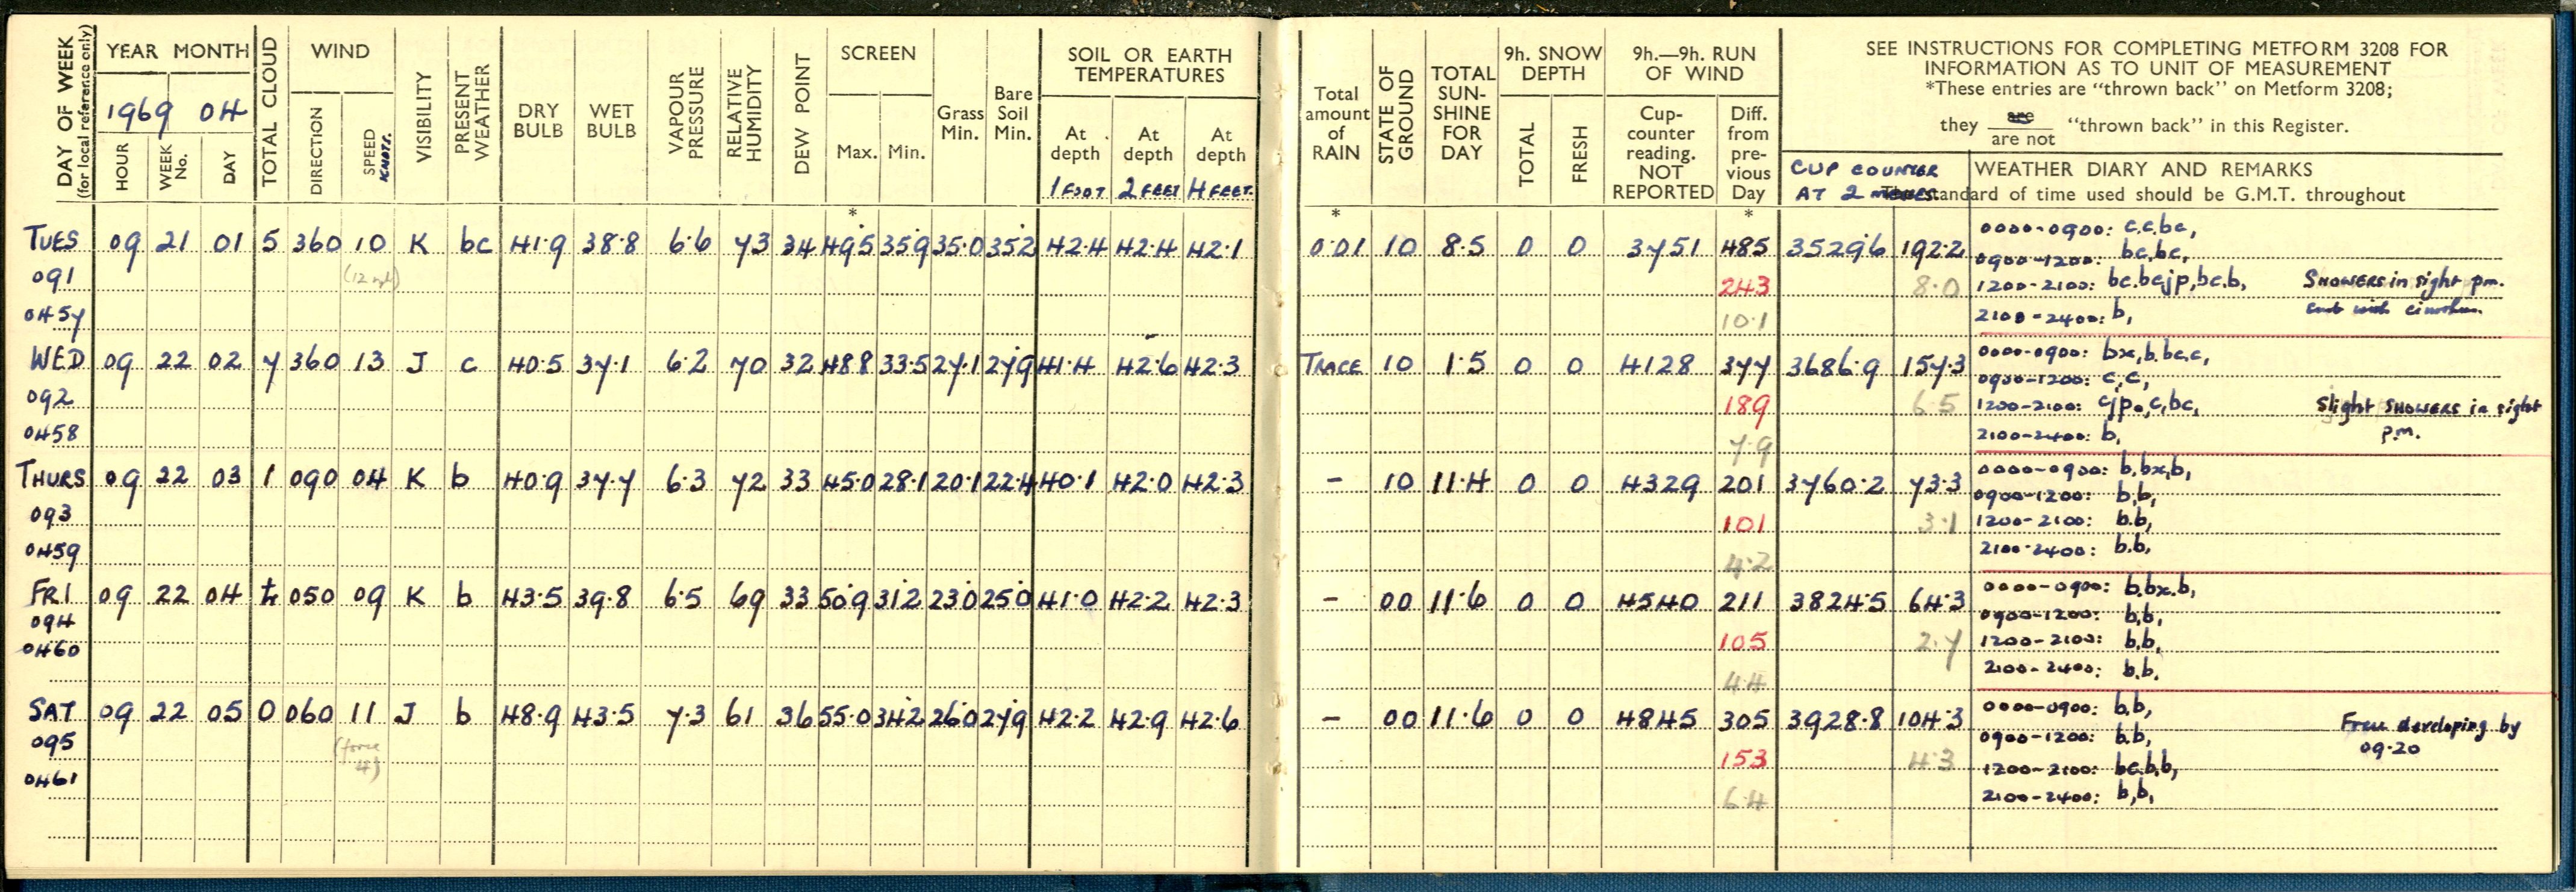 DAY OF WEEK
(for local reference only)
YEAR MONTH
1969 04
HOUR
WEEK No.
DAY
TOTAL CLOUD
WIND
DIRECTION
SPEED KNOTS.
VISIBILITY
PRESENT WEATHER
DRY BULB
WET BULB
VAPOUR PRESSURE
RELATIVE HUMIDITY
DEW POINT
SCREEN
Max. Min.
Grass Min.
Bare Soil Min.
SOIL OR EARTH TEMPERATURES
At depth 1 FOOT
At depth 2 FEET
At depth 4 FEET.
Total amount of RAIN
STATE OF GROUND
TOTAL SUN-SHINE FOR DAY
9h. SNOW DEPTH
TOTAL
FRESH
9h.—9h. RUN OF WIND
Cup-counter reading. NOT REPORTED
Diff. from pre-vious Day
SEE INSTRUCTIONS FOR COMPLETING METFORM 3208 FOR
INFORMATION AS TO UNIT OF MEASUREMENT
*These entries are "thrown back" on Metform 3208;
they are / are not "thrown back" in this Register.
CUP COUNTER
AT 2
WEATHER DIARY AND REMARKS
standard of time used should be G.M.T. throughout
* * *
TUES 09 21 01 5 360 10 K bc 41.9 38.8 6.6 73 34 49.5 35.9 35.0 35.2 42.4 42.4 42.1 0.01 10 8.5 0 0 3751 485 3529.6 192.2 0000-0900: c.c.bc,
0900-1200: bc,bc,
091 (12 mph) 243 8.0 1200-2100: bc.bcjp,bc.b, SHOWERS in sight p.m.
0457 10.1 2100-2400: b,
WED 09 22 02 7 360 13 J c 40.5 37.1 6.2 70 32 48.8 33.5 27.1 27.9 41.4 42.6 42.3 TRACE 10 1.5 0 0 4128 377 3686.9 157.3 0000-0900: bx,b.bc,c,
0900-1200: c,c,
092 189 6.5 1200-2100: cjpo,c,bc, Slight SHOWERS in sight
p.m.
0458 7.9 2100-2400: b,
THURS 09 22 03 1 090 04 K b 40.9 37.7 6.3 72 33 45.0 28.1 20.1 22.4 40.1 42.0 42.3 - 10 11.4 0 0 4329 201 3760.2 73.3 0000-0900: b.bx,b,
0900-1200: b,b,
093 101 3.1 1200-2100: b.b,
0459 4.2 2100-2400: b.b,
FRI 09 22 04 050 09 K b 43.5 39.8 6.5 69 33 50.9 31.2 23.0 25.0 41.0 42.2 42.3 - 00 11.6 0 0 4540 211 3824.5 64.3 0000-0900: b.bx.b,
0900-1200: b,b,
094 105 2.7 1200-2100: b,b,
0460 4.4 2100-2400: b,b,
SAT 09 22 05 0 060 11 J b 48.9 43.5 7.3 61 36 55.0 34.2 26.0 27.9 42.2 42.9 42.6 - 00 11.6 0 0 4845 305 3928.8 104.3 0000-0900: b,b,
0900-1200: b,b,
095 (force 4) 153 4.3 1200-2100: bc.b,b, developing by
09.20
0461 6.4 2100-2400: b,b,